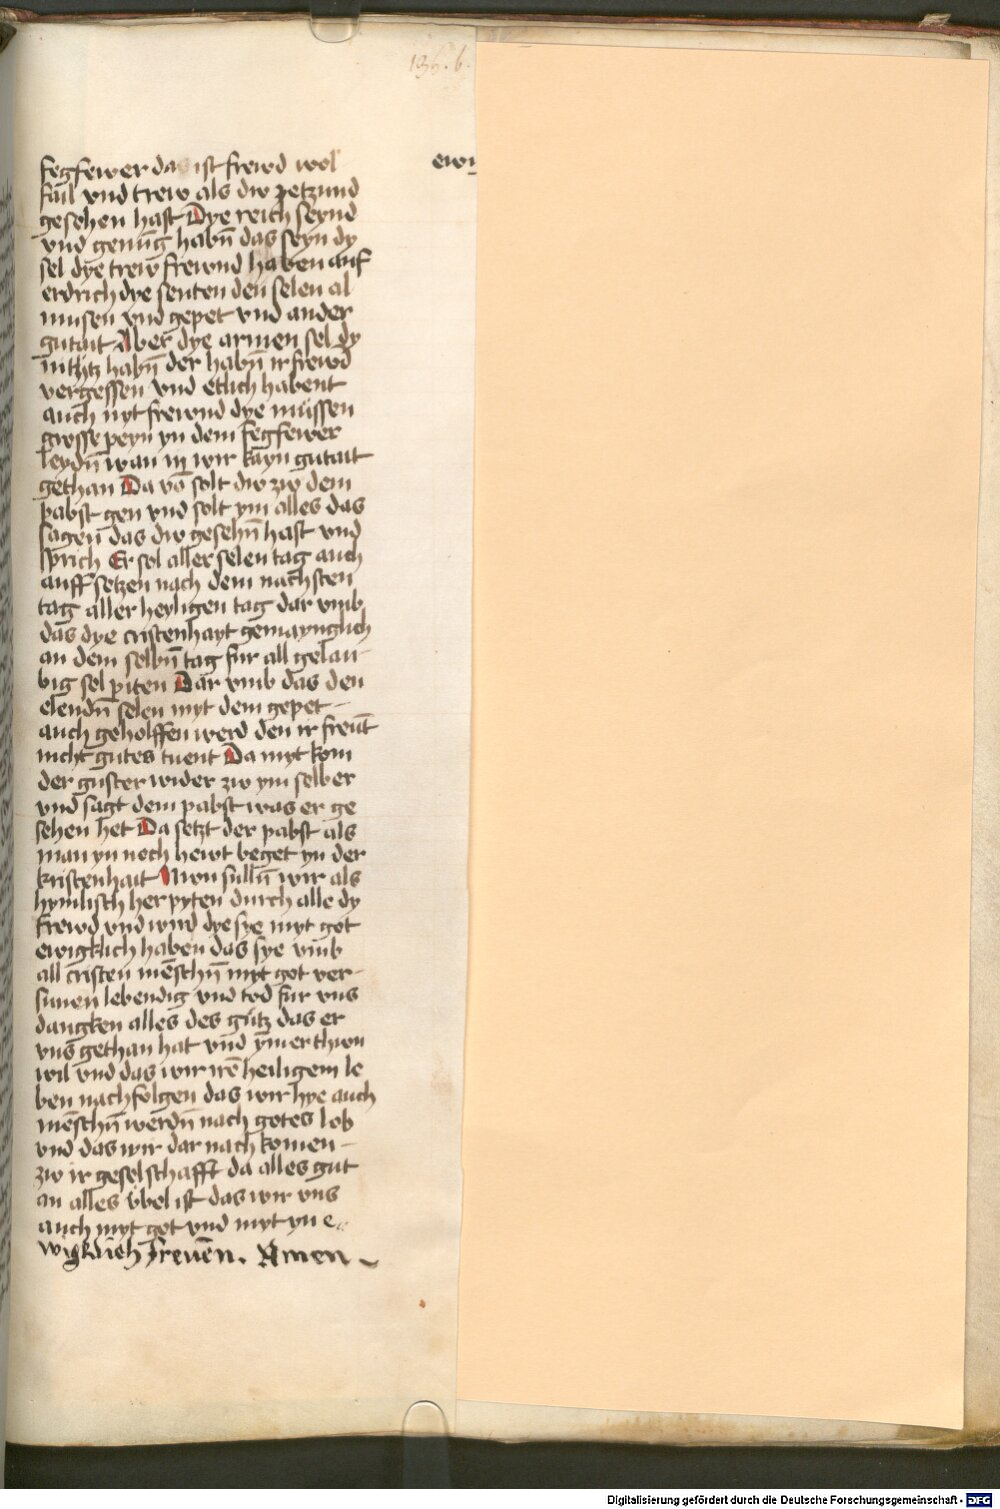 136. b.
fegfewer das ist frewd wol
fail vnd trew als diw yetzund
gesehen hast Dye reich seynd
vnd genug habn̄ das seyn dy
sel dye trew frewnd haben auf
erdrich dye senten den selen al
musen vnd gepet vnd ander
gutait Aber dye armen sel dy
nithtz habn̄ der habn̄ ir frewd
vergessen vnd etlich habent
auch nyt frewnd dye müssen
grosse peyn yn dem fegfewer
leydn̄ wan in wir kayn gutait
gethan Da vō solt diw zw dem
pabst gen vnd solt ym alles das
sagen das diw gesehn̄ hast vnd
sprich Er sol aller selen tag auch
auff setzen nach dem nachsten
tag aller heyligen tag dar vmb
das dye cristenhayt gemaynglich
an dem selbn̄ tag fur all gelau-
big sel piten Dar vmb das den
elendn̄ selen myt dem gepet
auch geholffen werd den ir freūt
nicht gutes tuent Da myt kom
der guster wider zw ym selber
vnd sagt dem pabst was er ge
sehen het Da setzt der pabst als
man yn noch hewt beget yn der
kristenhait Nwn sulln̄ wir als
hymlisch her pyten durch alle dy
frewd vnd wnd dye sye myt got
ewigklich haben das sye vmb
all cristen mēschn̄ myt got ver-
sunen lebendig vnd tod fur vns
dangken alles des gutz das er
vns gethan hat vnd ymer thwn
wil vnd das wir irē heiligem le
ben nachfolgen das wir hye auch
mēschn̄ werdn̄ nach gotes lob
vnd das wir dar nach komen
zw ir geselschafft da alles gut
an alles vbel ist das wir vns
auch myt got vnd myt yn e
wigklich freuēn. Amen
ewi
Digitalisierung gefördert durch die Deutsche Forschungsgemeinschaft - DFG